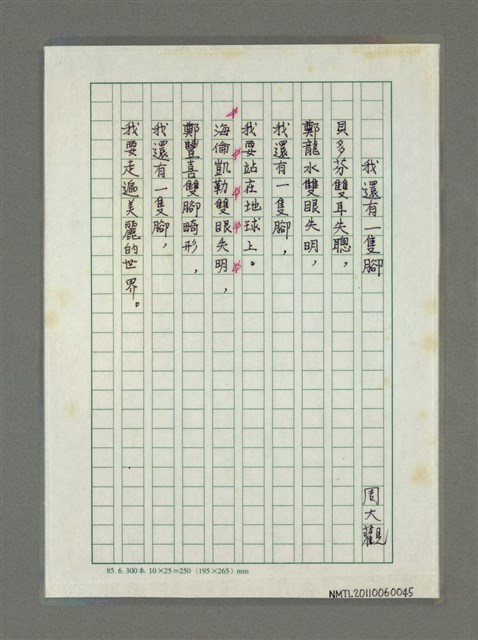 我還有一隻腳
周大觀
貝多芬雙耳失聰，
鄭龍水雙眼失明，
我還有一隻腳，
我要站在地球上。
海倫凱勒雙眼失明，
鄭豐喜雙腳畸形，
我還有一隻腳，
我要走遍美麗的世界。
85.6.300本 10×25=250 (195×265) mm
NMTL20110060045